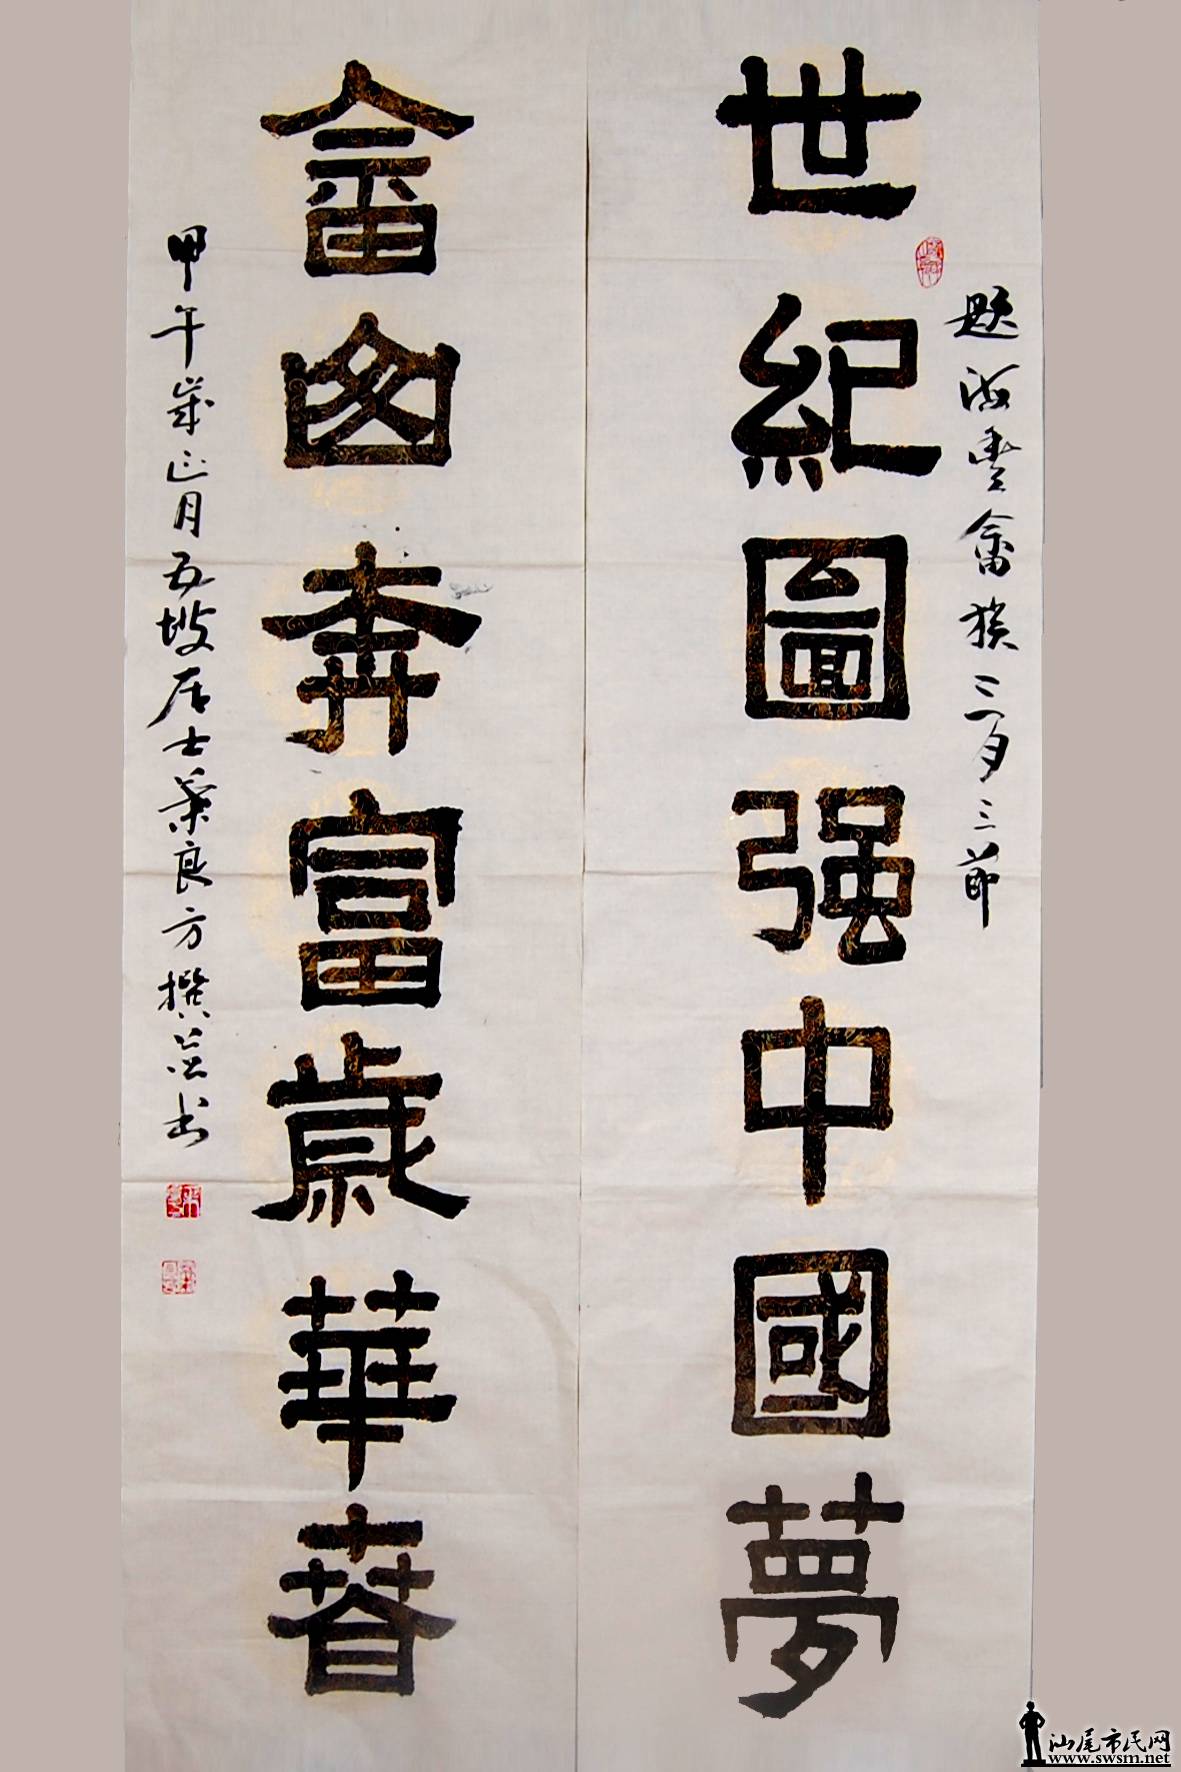 题海豐畲族三月三節
世紀圖强中國夢
畲奔富歲華春
甲午歲正月五坡居士葉良方撰並书
汕尾市民网
www.swsm.net